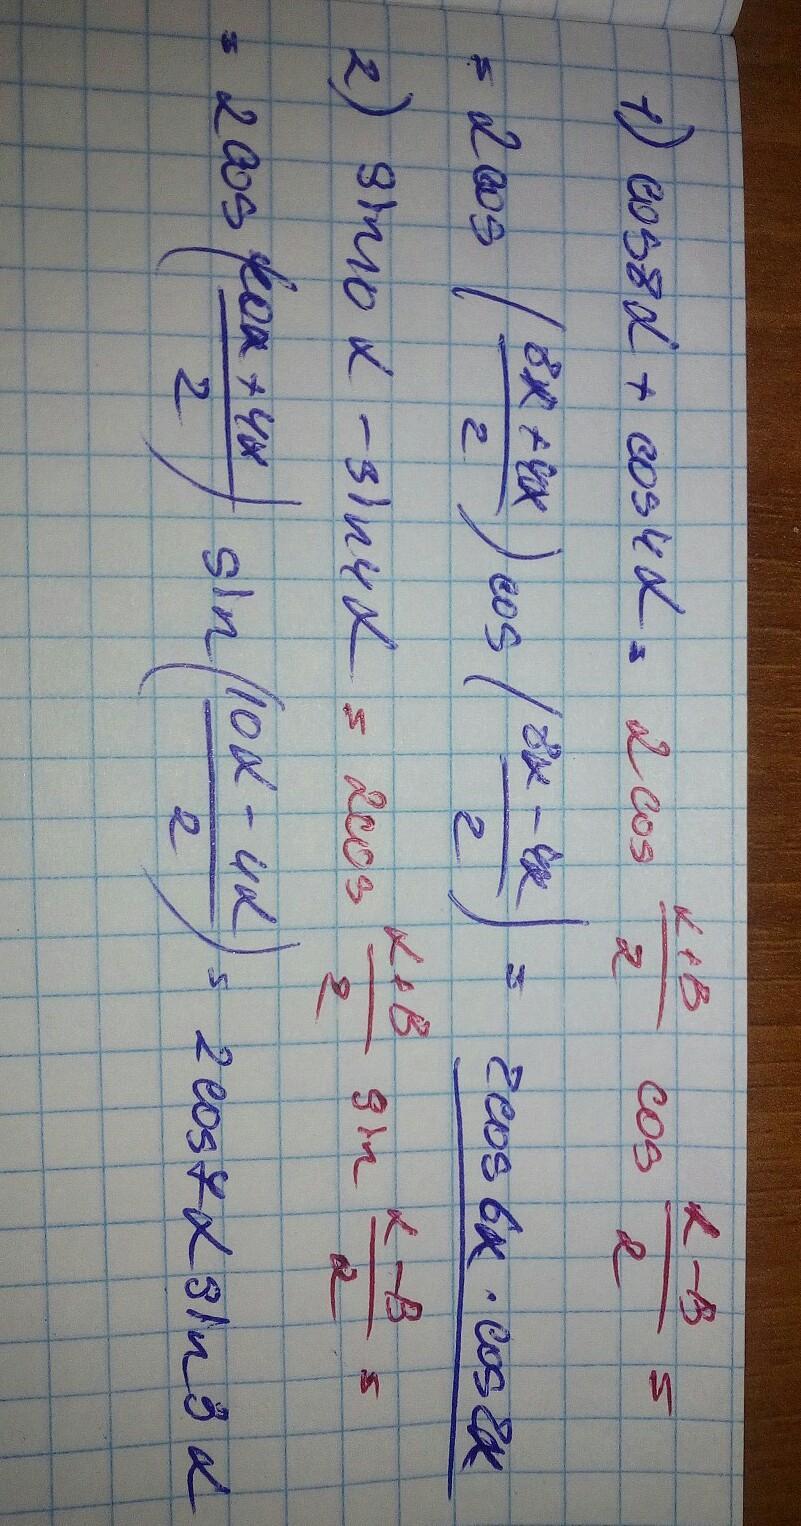 1) cos8α + cos4α = 2cos (α+β)/2 cos (α-β)/2 =
= 2cos ((8α+4α)/2) cos ((8α-4α)/2) = 2cos6α · cos2α
2) sin10α - sin4α = 2cos (α+β)/2 sin (α-β)/2 =
= 2cos ((10α+4α)/2) sin ((10α-4α)/2) = 2cos7α sin3α